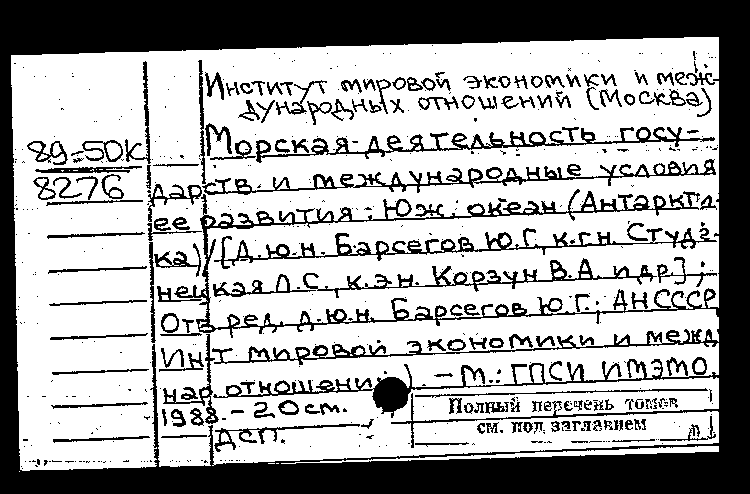 Институт мировой экономики и меж-
дународных отношений (Москва)
89-50К
Морская деятельность госу-
8276
дарств и международные условия
ее развития: Юж. океан (Антаркти-
ка)/[Д.ю.н. Барсегов Ю.Г., к.г.н. Студе-
нецкая Л.С., к.э.н. Корзун В.А. и др.];
Отв. ред. д.ю.н. Барсегов Ю.Г.; АН СССР
Ин-т мировой экономики и межд
нар. отношени . – М.: ГПСИ ИМЭМО,
1988. – 20 см.
ДСП.
Полный перечень томов
см. под заглавием